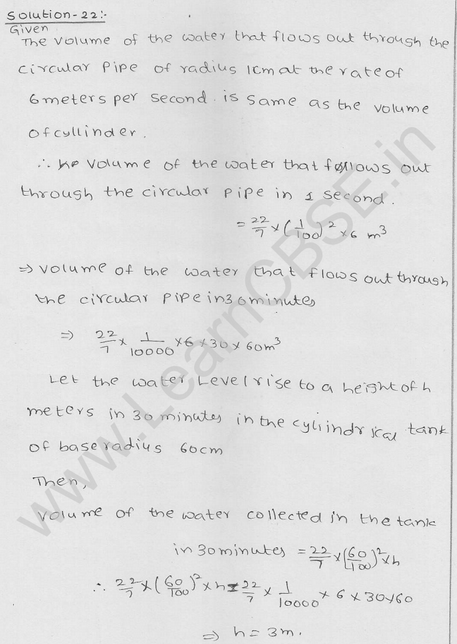 Solution-22:-
Given
The volume of the water that flows out through the
circular pipe of radius 1cm at the rate of
6 meters per second is same as the volume
of cyllinder.
∴ The volume of the water that follows out
through the circular pipe in 1 second.
= 22/7 × (1/100)² × 6 m³
⇒ volume of the water that flows out through
the circular pipe in 30 minutes
⇒ 22/7 × 1/10000 × 6 × 30 × 60 m³
Let the water level rise to a height of h
meters in 30 minutes in the cylindrical tank
of base radius 60cm
Then,
volume of the water collected in the tank
in 30 minutes = 22/7 × (60/100)² × h
∴ 22/7 × (60/100)² × h = 22/7 × 1/10000 × 6 × 30 × 60
⇒ h = 3m.
www.LearnCBSE.in